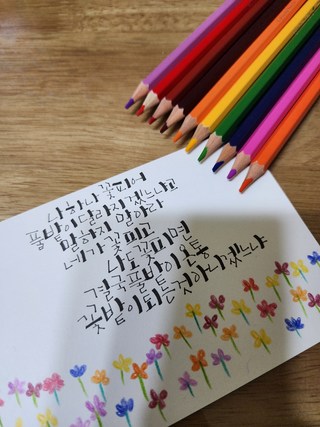 나 하나 꽃피어
풀밭이 달라지겠느냐고
말하지 말아라
네가 꽃피고
나도 꽃피면
결국 풀밭이 온통
꽃밭이 되는 것 아니겠느냐